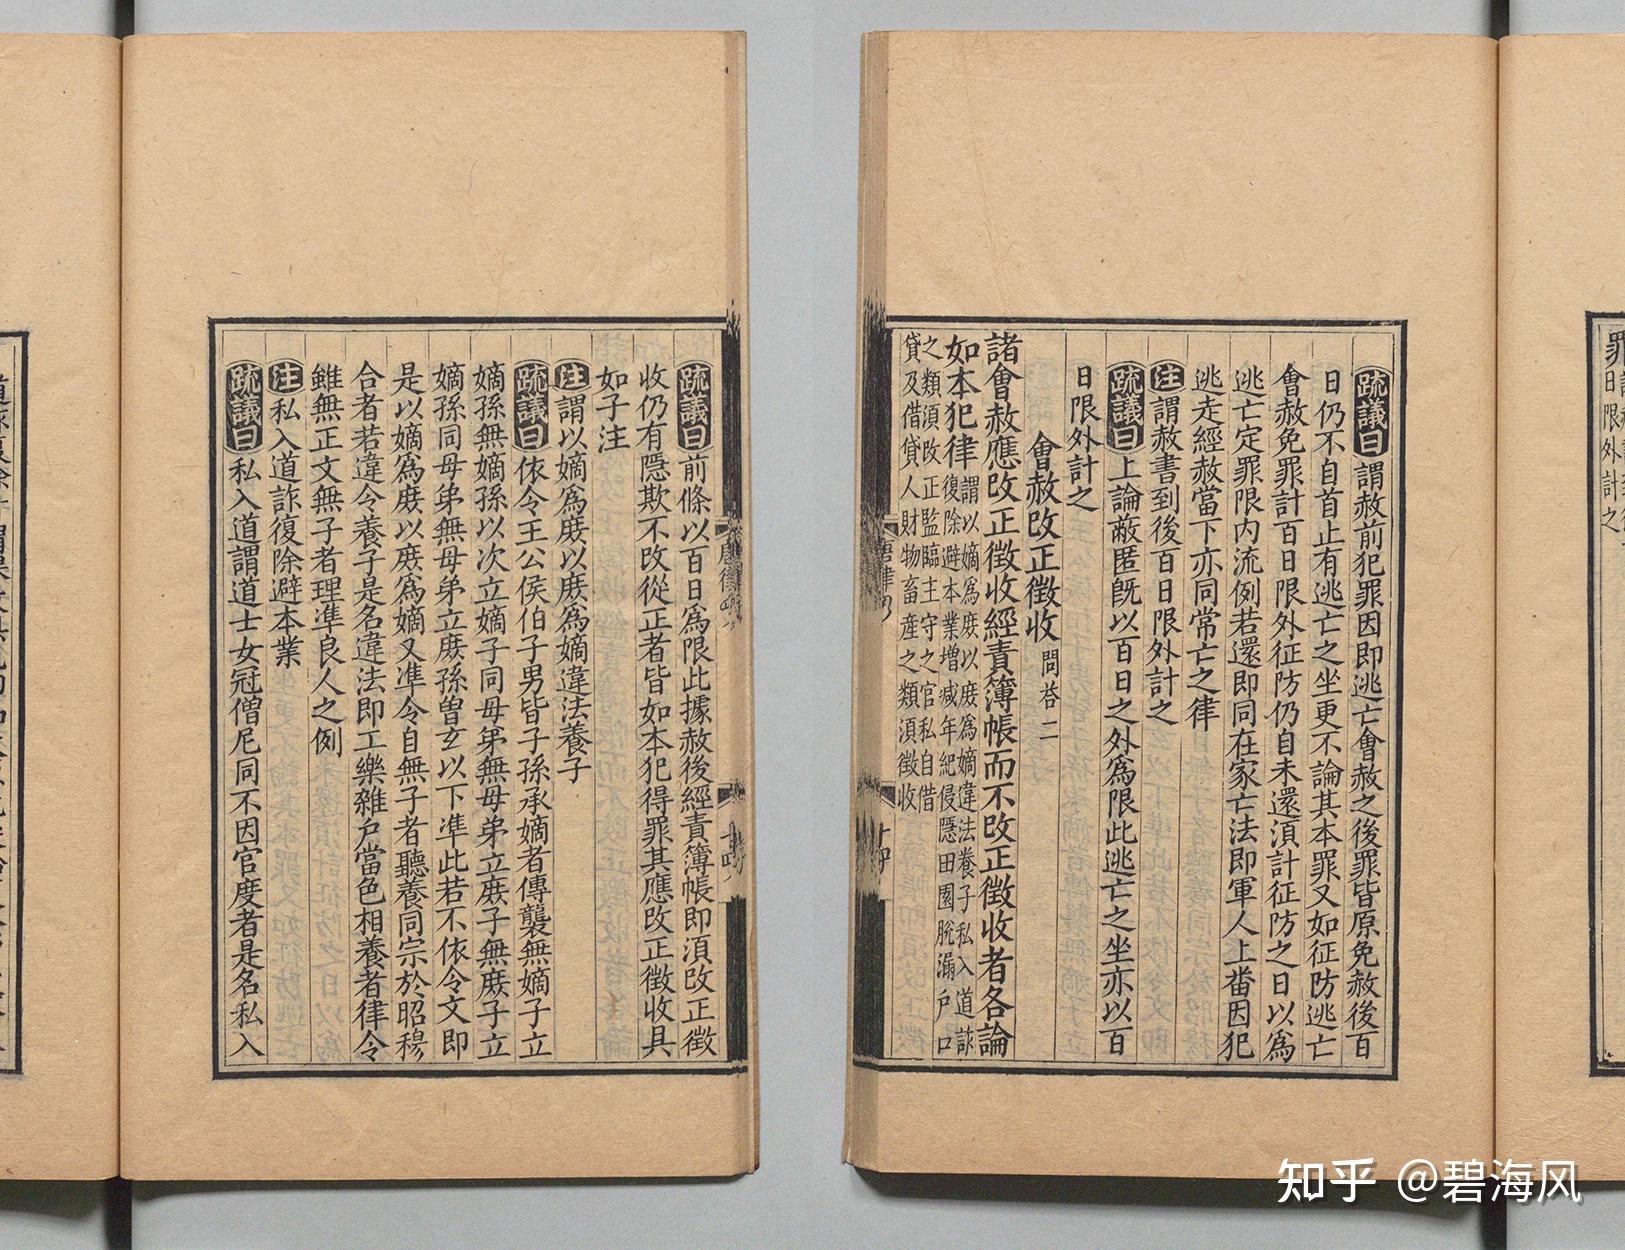 罪
日限外計之
疏議曰謂赦前犯罪因即逃亡會赦之後罪皆原免赦後百
日仍不自首止有逃亡之坐更不論其本罪又如征防逃亡
會赦免罪計百日限外征防仍自未還須計征防之日以爲
逃亡定罪限内流例若還即同在家亡法即軍人上番因犯
逃走經赦當下亦同常亡之律
注謂赦書到後百日限外計之
疏議曰上論蔽匿旣以百日之外爲限此逃亡之坐亦以百
日限外計之
會赦改正徵收問荅二
諸會赦應改正徵收經責簿帳而不改正徵收者各論
如本犯律謂以嫡爲庻以庻爲嫡違法養子私入道詠
復除避本業增减年紀侵隱田園脫漏户口
之類須改正監臨主守之官私自借
貸及借貸人財物畜産之類須徵收
疏議曰前條以百日爲限此據赦後經責簿帳即須改正徵
收仍有隱欺不改從正者皆如本犯得罪其應改正徵收具
如子注
注謂以嫡爲庻以庻爲嫡違法養子
疏議曰依令王公侯伯子男皆子孫承嫡者傳襲無嫡子立
嫡孫無嫡孫以次立嫡子同母弟無母弟立庻子無庻子立
嫡孫同母弟無母弟立庻孫曽玄以下凖此若不依令文即
是以嫡爲庻以庻爲嫡又凖令自無子者聽養同宗於昭穆
合者若違令養子是名違法即工樂雜户當色相養者律令
雖無正文無子者理凖良人之例
注私入道詐復除避本業
疏議曰私入道謂道士女冠僧尼同不因官度者是名私入
知乎 @碧海风